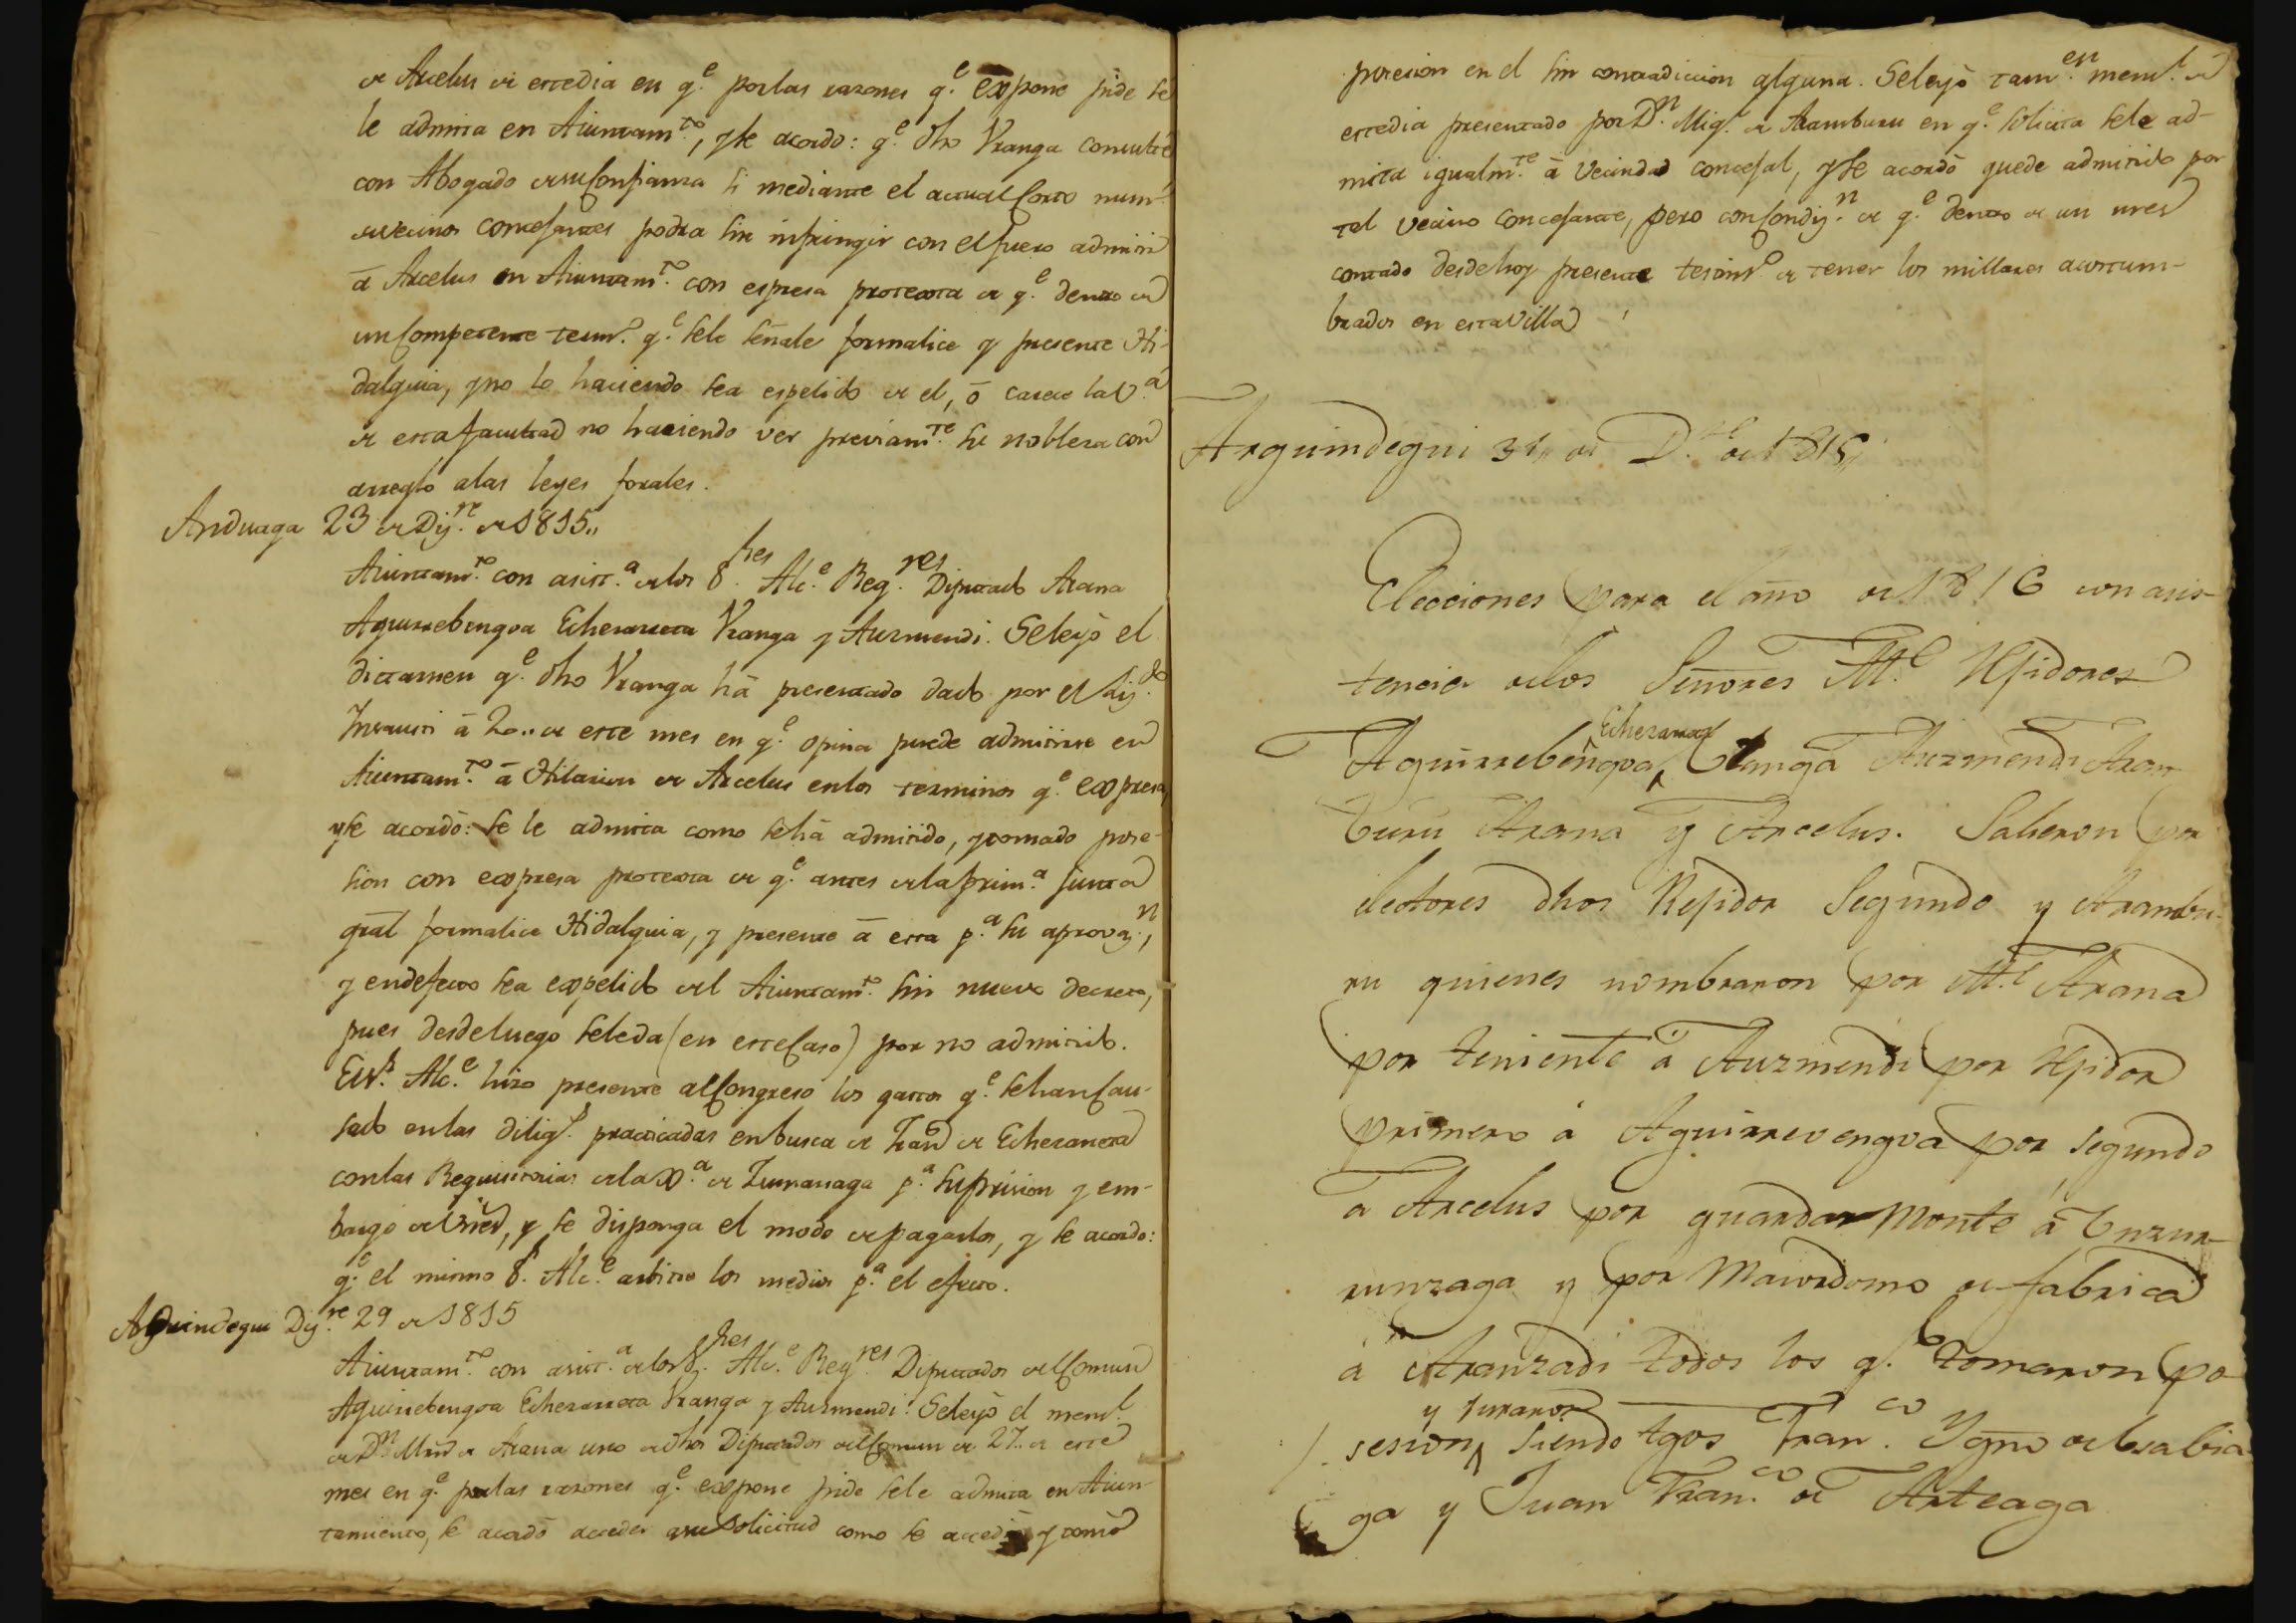 de Arcelus de este dia en q.e por las razones q.e expone pide se
le admita en Aiuntam.to, y se acordo: q.e dho Vranga consulte
con Abogado de su Confianza si mediante el actual Corto num.o
de vecinos concejantes podra sin infringir con el fuero admitir
â Arcelus en Aiuntam.to con espresa protexta de q.e dentro de
un Competente term.o q.e sele señale formalice y presente Hi-
dalguia, y no lo haciendo sea espelido de el, ô carece la V.a
de esta facultad no haciendo ver previam.te su nobleza con
arreglo a las leyes forales.
Anduaga 23 de Diz.re de 1815,,
Aiuntam.to con asist.a de los S.res Alc.e Reg.res Diputado Arana
Aguirrebengoa Echezarreta Vranga y Auzmendi. Seleyò el
dictamen q.e dho Vranga hâ presentado dado por el Liz.do
Insausti â 20.. de este mes en q.e opina puede admitirse en
Aiuntam.to â Hilarion de Arcelus en los terminos q.e expresa,
y se acordò: se le admita como se hâ admitido, y tomado pose-
sion con expresa protexta de q.e antes de la prim.a Junta
gral formalice Hidalguia, y presente â esta p.a su aprovaz.n,
y en defecto sea expelido del Aiuntam.to sin nuevo decreto,
pues desde luego sele da (en este Caso) por no admitido.
El S.r Alc.e hizo presente al Congreso los gastos q.e se han Cau-
sado en las dilig.s practicadas en busca de Fran.co de Echezarreta
con las Requisitorias de la X.a de Zumarraga p.a su prision y em-
bargo de Vienes, y se disponga el modo de pagarlos, y se acordo:
q.e el mismo S.r Alc.e arbitre los medios p.a el efecto.
Aguindegui Diz.re 29 de 1815
Aiuntam.to con asist.a de los S.res Alc.e Reg.res Diputados del Comun
Aguirrebengoa Echezarreta Vranga y Auzmendi. Seleyò el mem.l
de D.n Mrn de Arana uno de dhos Diputados del Comun de 27.. de este
mes en q.e por las razones q.e expone pide sele admita en Aiun-
tamiento, se acordò acceder a su Solicitud como se accediò y tomò
posesion en el sin contradiccion alguna. Seleyò tam.en mem.l de
este dia presentado por D.n Mig.l de Aramburu en q.e solicita sele ad-
mita igualm.te â Vecindad concejal, y se acordò quede admitido por
tal vecino Concejante, pero con Condiz.n de q.e dentro de un mes
contado desde hoy presente testim.o de tener los millares acostum-
brados en esta Villa
Arguindegui 31,, de D.re de 1815,,
Elecciones para el año de 1816 con asis-
tencia de los Señores Al.e Rejidores
Aguirrebengoa, Echezarreta Vranga Auzmendi Aram-
buru Arana y Arcelus. Salieron por
electores dhos Rejidor Segundo y Arambu-
ru quienes nombraron por Al.e Arana
por teniente á Auzmendi por Rejidor
primero á Aguirrevengoa por segundo
a Arcelus por guarda Monte á Vnzur-
runzaga y por Maiordomo de fabrica
á Aranzadi todos los q.e tomaron po-
sesion y juraron siendo tgos Fran.co Ygno de Usabia-
ga y Juan Fran.co de Arteaga